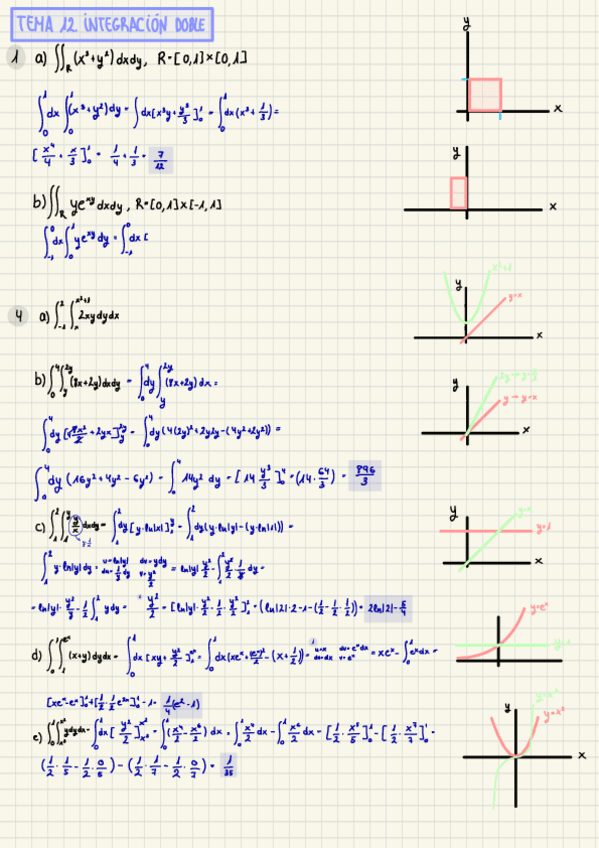 TEMA 12. INTEGRACIÓN DOBLE
1 a) ∬_R (x³+y²) dxdy, R=[0,1]×[0,1]
∫₀¹dx ∫₀¹(x³+y²)dy = ∫dx[x³y+y³/3]₀¹ = ∫₀¹dx(x³+1/3)=
[x⁴/4+x/3]₀¹ = 1/4+1/3 = 7/12
b) ∬_R ye^xy dxdy, R=[0,1]×[-1,1]
∫₋₁⁰dx ∫₀¹ye^xy dy = ∫₋₁⁰dx [
4 a) ∫₋₁² ∫ₓ^(x²+1) 2xydydx
b) ∫₀⁴∫_y^2y (8x+2y)dxdy = ∫₀⁴dy ∫_y^2y (8x+2y)dx =
∫₀⁴dy [8x²/2+2yx]_y^2y = ∫₀⁴dy (4(2y)²+2y2y-(4y²+2y²)) =
∫₀⁴dy (16y²+4y²-6y²) = ∫₀⁴14y² dy = [14 y³/3]₀⁴ = (14·64/3) = 896/3
c) ∫₁²∫₁^y y/x dxdy = ∫₁²dy[y·ln|x|]₁^y = ∫₁²dy(y·ln|y|-(y·ln|1|)) =
∫₁² y·ln|y|dy = u=ln|y| dv=ydy
du=1/y dy v=y²/2 = ln|y| y²/2 - ∫y²/2 1/y dy =
= ln|y|·y²/2 - 1/2∫₁² ydy = y²/2 = [ln|y|·y²/2 - 1/2·y²/2]₁² = (ln|2|·2-1-(1/2-1/2·1/2)) = 2ln|2|-5/4
d) ∫₀¹∫₁^eˣ (x+y)dydx = ∫₀¹dx [xy+y²/2]₁^eˣ = ∫₀¹dx(xeˣ+(eˣ)²/2-(x+1/2)) = u=x dv=eˣdx
du=dx v=eˣ = xeˣ-∫₀¹eˣdx =
[xeˣ-eˣ]₀¹+[1/2·1/2e²ˣ]₀¹-1= 1/4(e²-1)
e) ∫₀¹∫ydydx = ∫₀¹dx[y²/2] = ∫₀¹(x⁴/2-x⁶/2) dx = ∫₀¹x⁴/2dx-∫₀¹x⁶/2dx = [1/2·x⁵/5]₀¹-[1/2·x⁷/7]₀¹=
(1/2·1/5-1/2·0/5)-(1/2·1/7-1/2·0/7) = 1/35
y
x
y
x
y
x²+1
y=x
x
y
y→y=x
x
y
y=x
y=1
x
y=eˣ
y=1
y
y=x³
y=x²
x